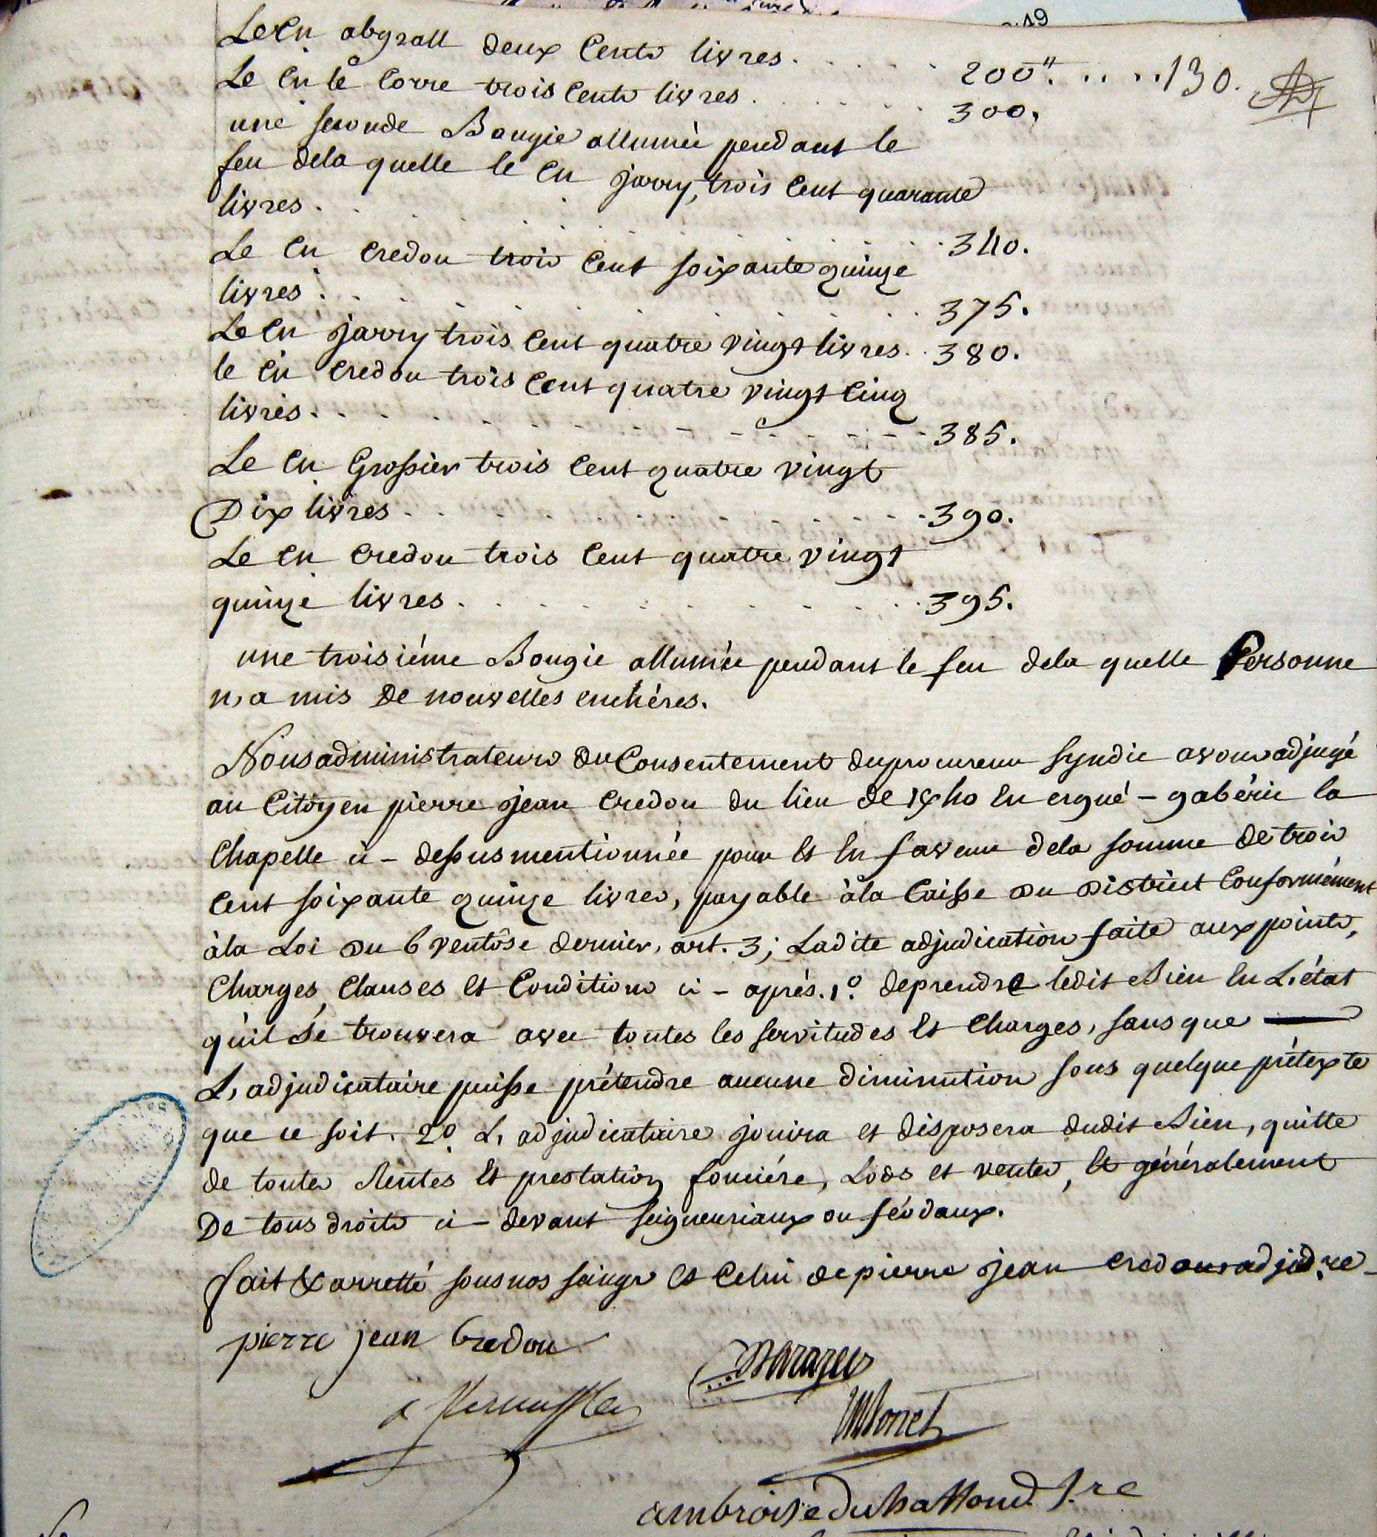 Le Cn abgrall deux Cents livres . . . . . . 200 ". . . . . 130.
Le Cn le Corre trois Cents livres . . . . . . 300.
une seconde Bougie allumée pendant le
feu dela quelle le Cn jarry, trois Cent quarante
livres . . . . . . 340.
Le Cn Credou trois Cent soixante quinze
livres . . . . . . 375.
Le Cn jarry trois Cent quatre vingt livres . . 380.
le Cn Credou trois Cent quatre vingt Cinq
livres . . . . . . 385.
Le Cn Grossier trois Cent quatre vingt
Dix livres . . . . . . 390.
Le Cn Credou trois Cent quatre vingt
quinze livres . . . . . . 395.
une troisiéme Bougie allumée pendant le feu dela quelle Personne
n,a mis De nouvelles enchéres.
Nous administrateurs Du Consentement du procureur Syndic avons adjugé
au Citoyen pierre jean Credou du lieu de En ergué - gabéric la
Chapelle ci - dessus mentionnée pour Et En faveur dela somme de trois
Cent soixante quinze livres, payable àla Caisse Du District Conformément
àla Loi Du 6 ventôse dernier, art. 3; Ladite adjudication faite aux points,
Charges, Clauses Et Conditions ci - aprés. 1.º deprendre ledit Bien En L,état
qu'il Se trouvera avec toutes les servitudes Et Charges, sans que
L, adjudicataire puisse prétendre aucune diminution sous quelque prétexte
que ce soit. 2º L, adjudicataire jouira et disposera dudit Bien, quitte
de toutes Rentes Et prestation fonciére, Lods et ventes, Et généralement
De tous droits ci - devant seigneuriaux ou féodaux.
fait & arretté sous nos seings Et Celui de pierre jean Credou adjudre
pierre jean Credou
ambroise du haffond. S.re